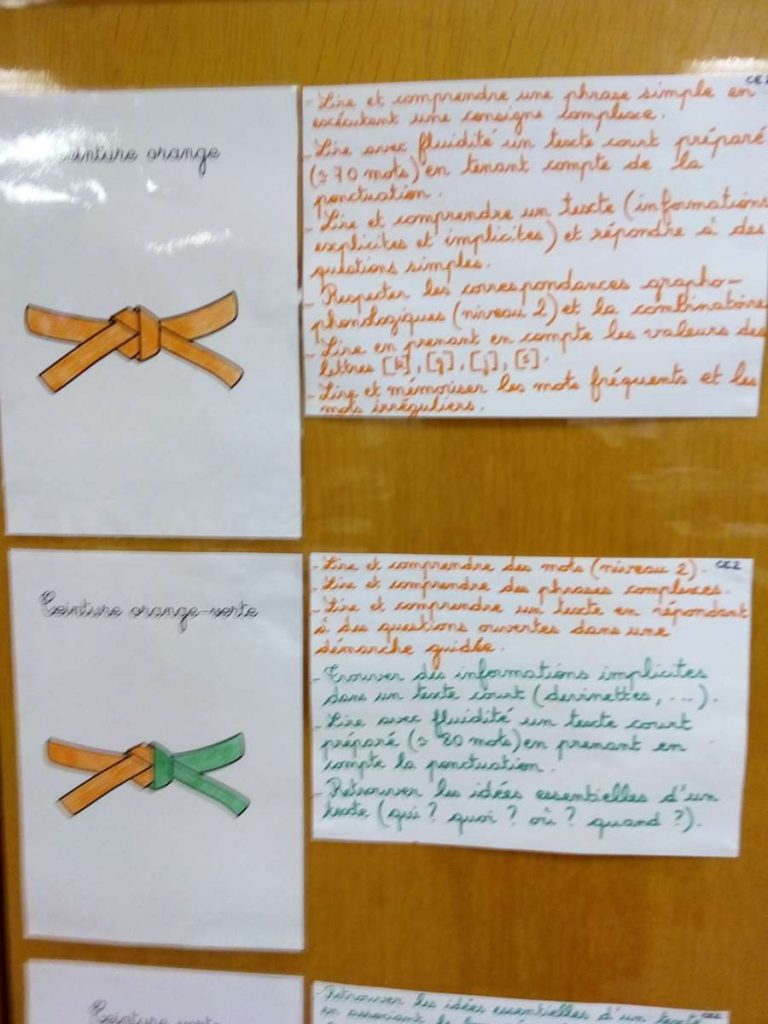 Ceinture orange
CE2
- Lire et comprendre une phrase simple en
exécutant une consigne complexe.
- Lire avec fluidité un texte court préparé
(≥ 70 mots) en tenant compte de la
ponctuation.
- Lire et comprendre un texte (informations
explicites et implicites) et répondre à des
questions simples.
- Respecter les correspondances grapho-
phonologiques (niveau 2) et la combinatoire
- Lire en prenant en compte les valeurs des
lettres [k], [g], [j], [s].
- Lire et mémoriser les mots fréquents et les
mots irréguliers.
Ceinture orange-verte
CE2
- Lire et comprendre des mots (niveau 2).
- Lire et comprendre des phrases complexes.
- Lire et comprendre un texte en répondant
à des questions ouvertes dans une
démarche guidée.
- Trouver des informations implicites
dans un texte court (devinettes, ...).
- Lire avec fluidité un texte court
préparé (≥ 80 mots) en prenant en
compte la ponctuation.
- Retrouver les idées essentielles d'un
texte (qui ? quoi ? où ? quand ?).
Ceinture verte
- Retrouver les idées essentielles d'un texte
en associant